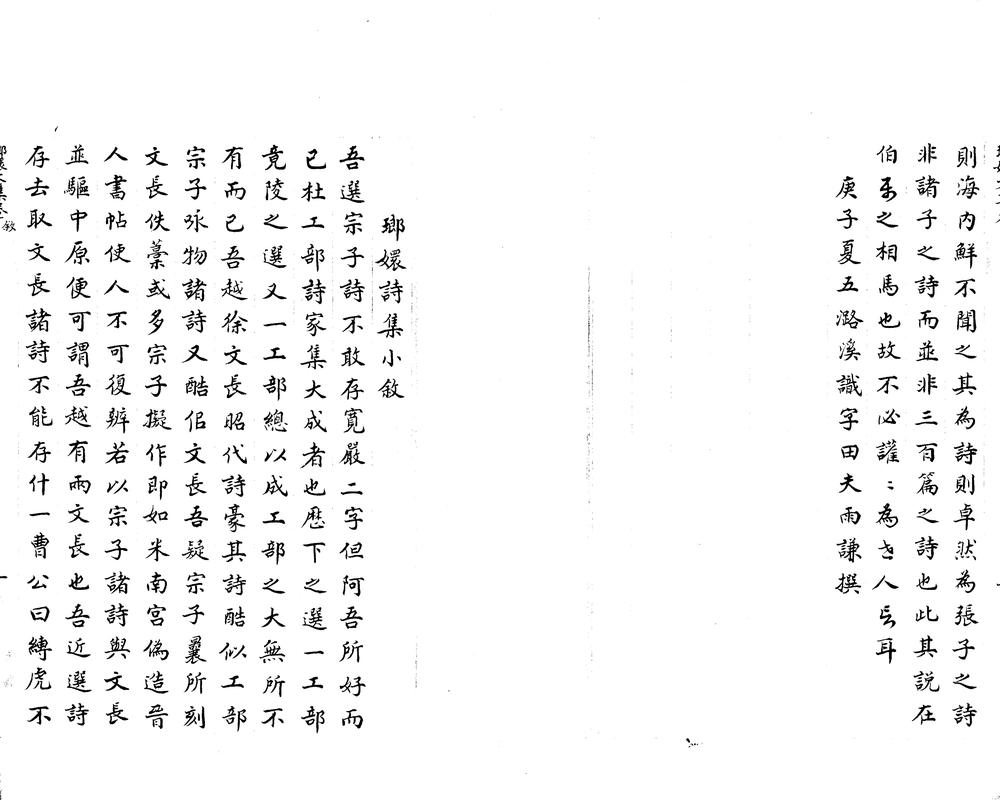 則海内鮮不聞之其為詩則卓然為張子之詩
非諸子之詩而並非三百篇之詩也此其説在
伯之相馬也故不必讙〻為人言耳
庚子夏五潞溪識字田夫雨謙撰
瑯嬛詩集小敘
吾選宗子詩不敢存寛嚴二字但阿吾所好而
已杜工部詩家集大成者也歷下之選一工部
竟陵之選又一工部總以成工部之大無所不
有而已吾越徐文長昭代詩豪其詩酷似工部
宗子咏物諸詩又酷佀文長吾疑宗子曩所刻
文長佚藁或多宗子擬作即如米南宮偽造晉
人書帖使人不可復辨若以宗子諸詩與文長
並驅中原便可謂吾越有兩文長也吾近選詩
存去取文長諸詩不能存什一曹公曰縛虎不